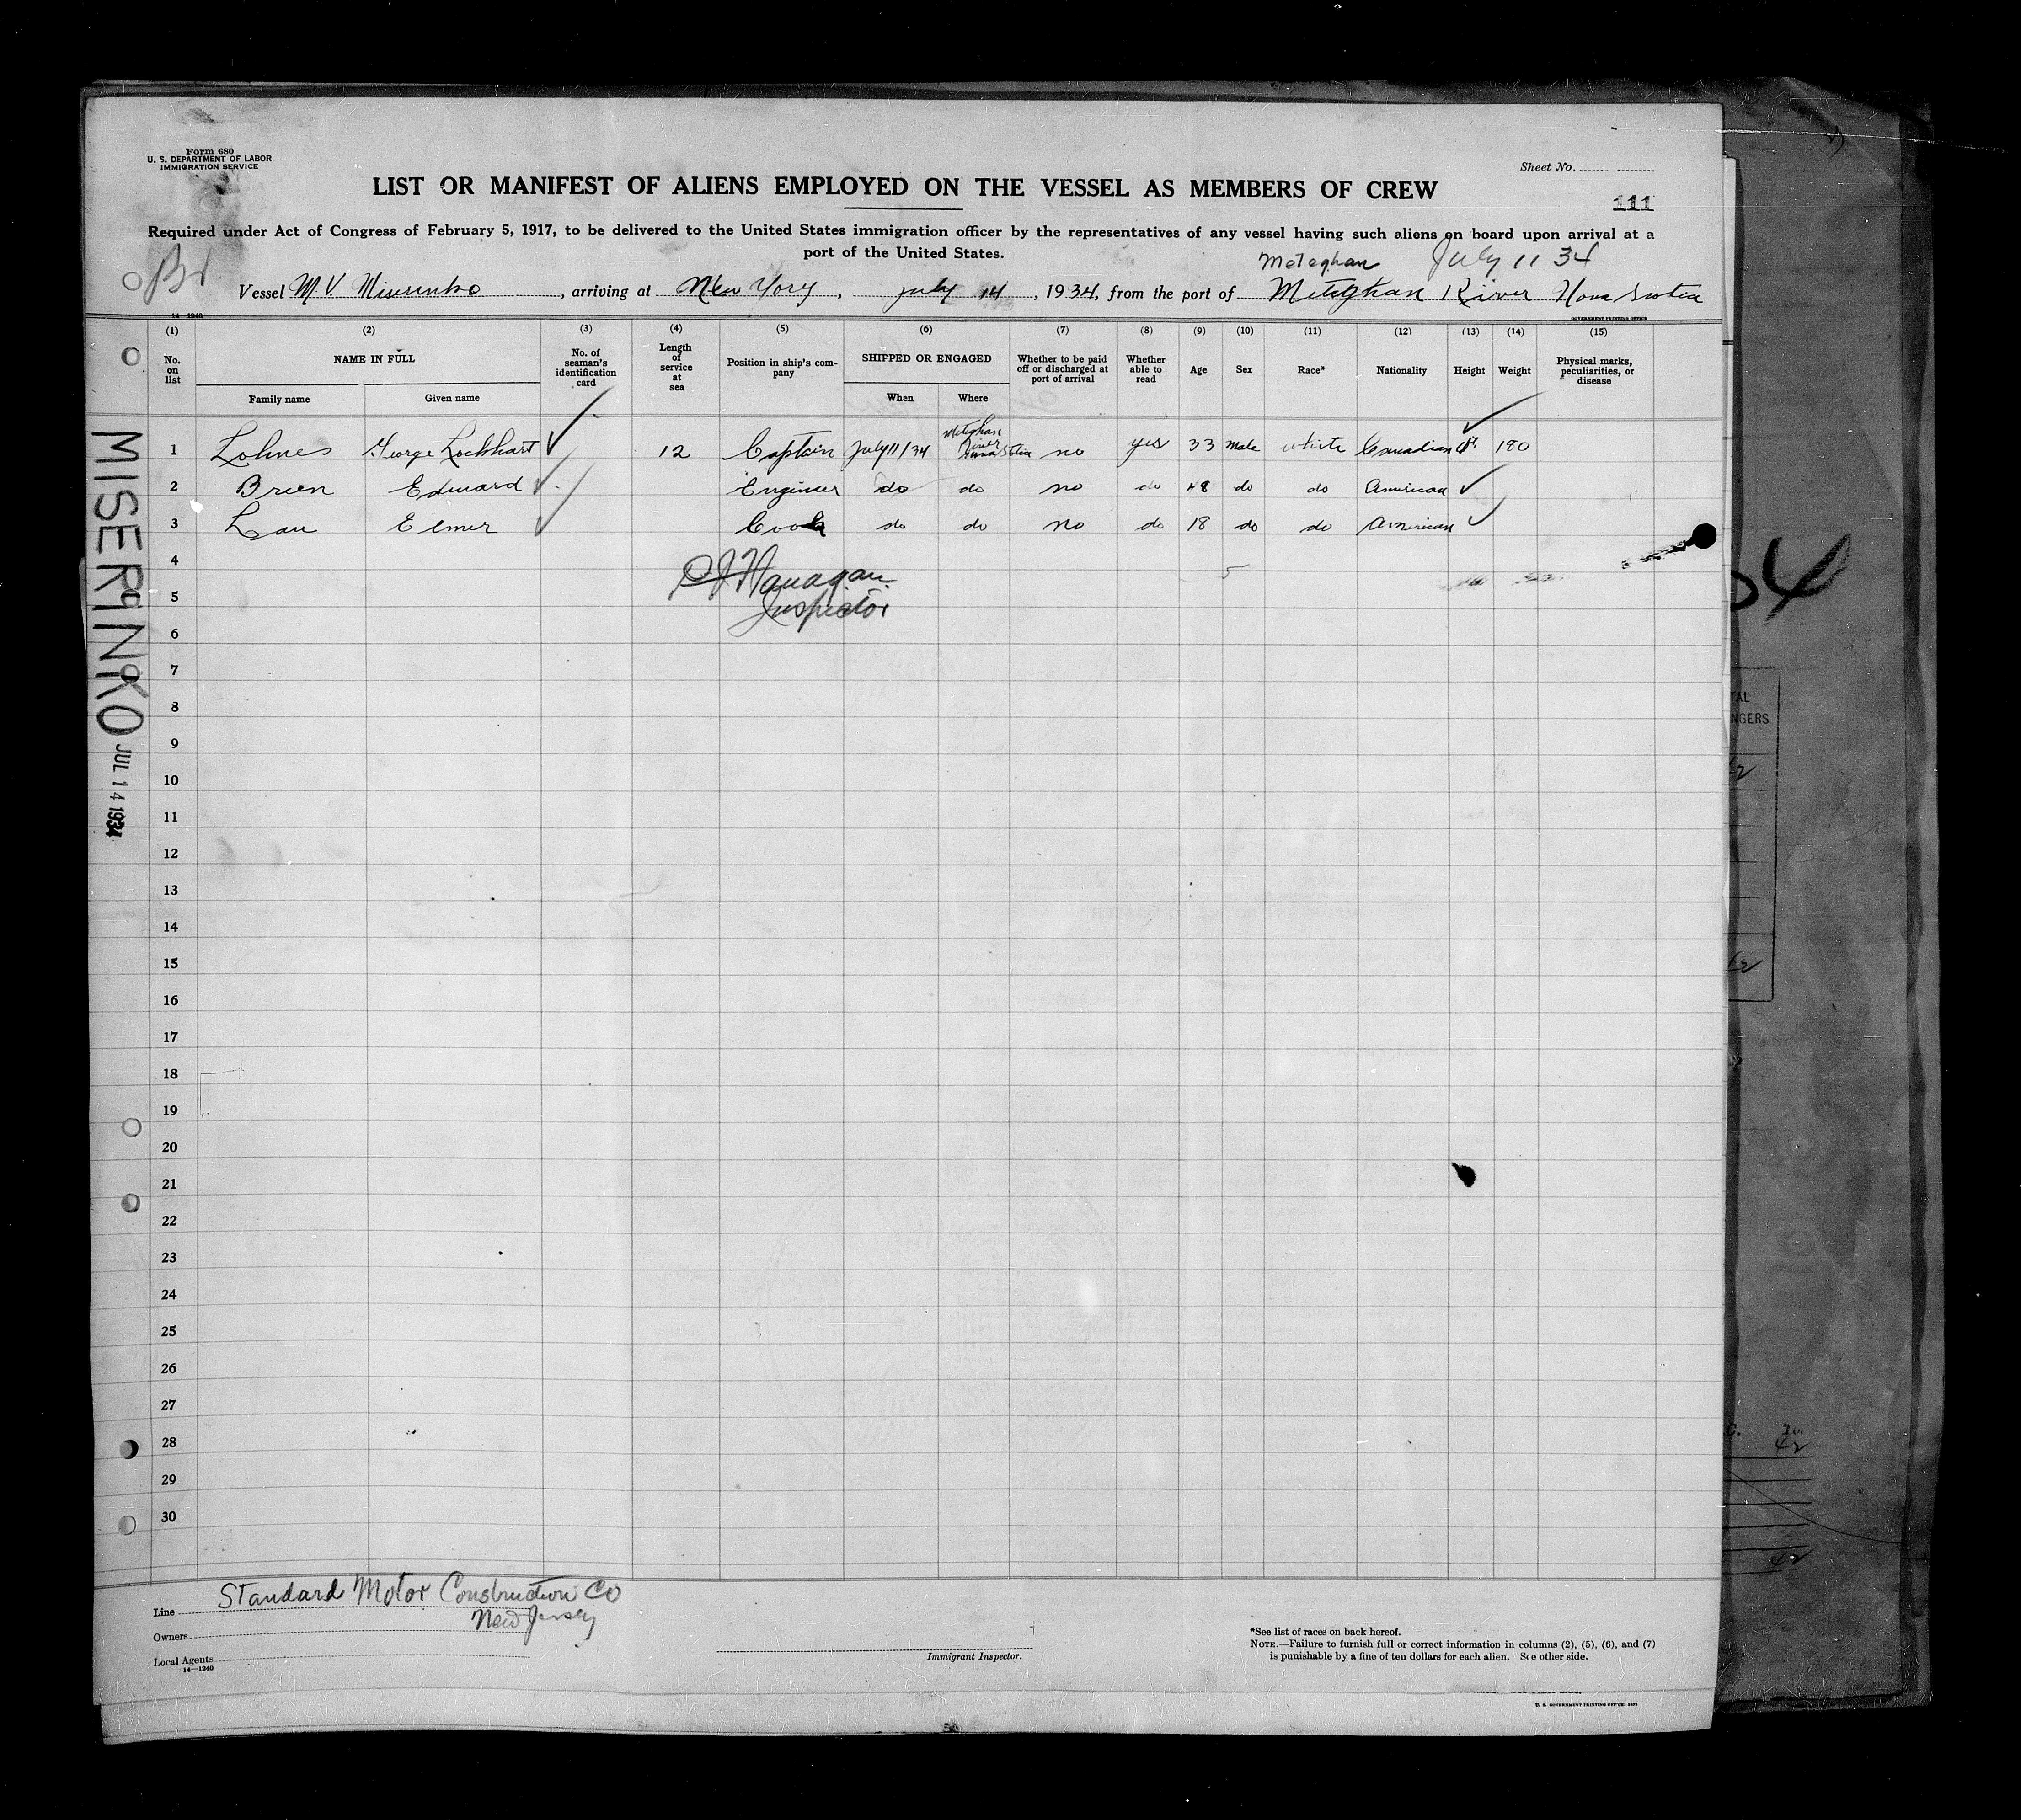 Form 680
U. S. DEPARTMENT OF LABOR
IMMIGRATION SERVICE
Sheet No.
LIST OR MANIFEST OF ALIENS EMPLOYED ON THE VESSEL AS MEMBERS OF CREW
111
Required under Act of Congress of February 5, 1917, to be delivered to the United States immigration officer by the representatives of any vessel having such aliens on board upon arrival at a
port of the United States.
Meteghan July 11 34
Vessel M.V. Miserinko, arriving at New York, July 14, 1934, from the port of Meteghan River Nova Scotia
14—1240
GOVERNMENT PRINTING OFFICE
(1) (2) (3) (4) (5) (6) (7) (8) (9) (10) (11) (12) (13) (14) (15)
No. on list
NAME IN FULL
Family name Given name
No. of seaman's identification card
Length of service at sea
Position in ship's company
SHIPPED OR ENGAGED
When Where
Whether to be paid off or discharged at port of arrival
Whether able to read
Age Sex Race* Nationality Height Weight
Physical marks, peculiarities, or disease
1 Lohnes George Lockhart 12 Captain July 11/34 Meteghan River Nova Scotia no yes 33 Male white Canadian 180
2 Breen Edward Engineer do do no do 48 do do American
3 Lau Elmer Cook do do no do 18 do do American
4
Flanagan
5
Inspector
6
7
8
9
10
11
12
13
14
15
16
17
18
19
20
21
22
23
24
25
26
27
28
29
30
MISERINKO
JUL 14 1934
Line Standard Motor Construction Co
New Jersey
Owners
Local Agents
14—1240
Immigrant Inspector.
*See list of races on back hereof.
NOTE.—Failure to furnish full or correct information in columns (2), (5), (6), and (7)
is punishable by a fine of ten dollars for each alien. See other side.
U. S. GOVERNMENT PRINTING OFFICE